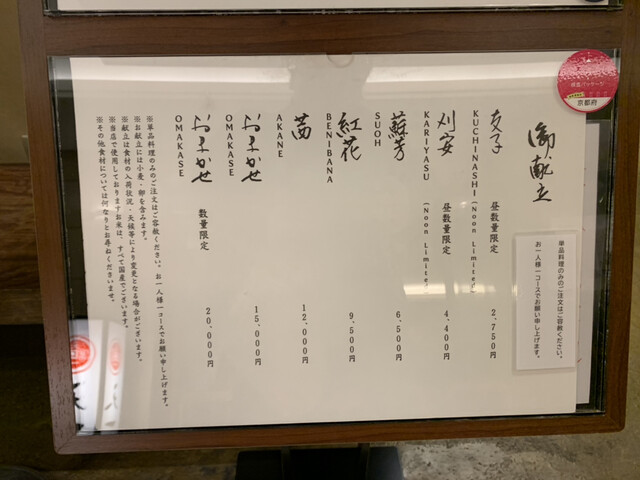 御献立
単品料理のみのご注文はご容赦ください。
お一人様一コースでお願い申し上げます。
支子 昼数量限定 2,750円
KUCHINASHI (Noon Limited)
刈安 昼数量限定 4,400円
KARIYASU (Noon Limited)
蘇芳 6,500円
SUOH
紅花 9,500円
BENIBANA
茜 12,000円
AKANE
おまかせ 15,000円
OMAKASE
おまかせ 数量限定 20,000円
OMAKASE
※単品料理のみのご注文はご容赦ください。お一人様一コースでお願い申し上げます。
※お献立には小麦・卵を含みます。
※献立は食材の入荷状況・天候等により変更となる場合がございます。
※当店で使用しておりますお米は、すべて国産でございます。
※その他食材については何なりとお尋ねくださいませ。
京都府